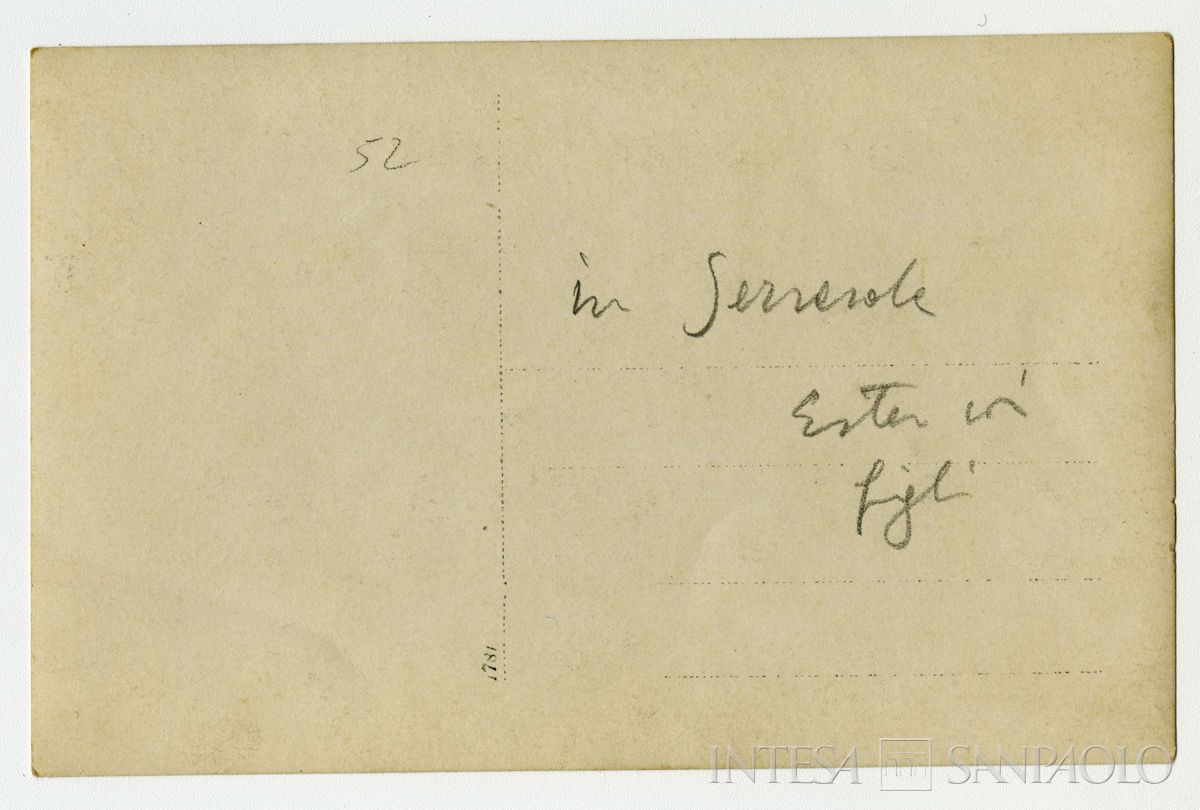 52
in Serrasole
Ester coi
figli
1781
INTESA SANPAOLO